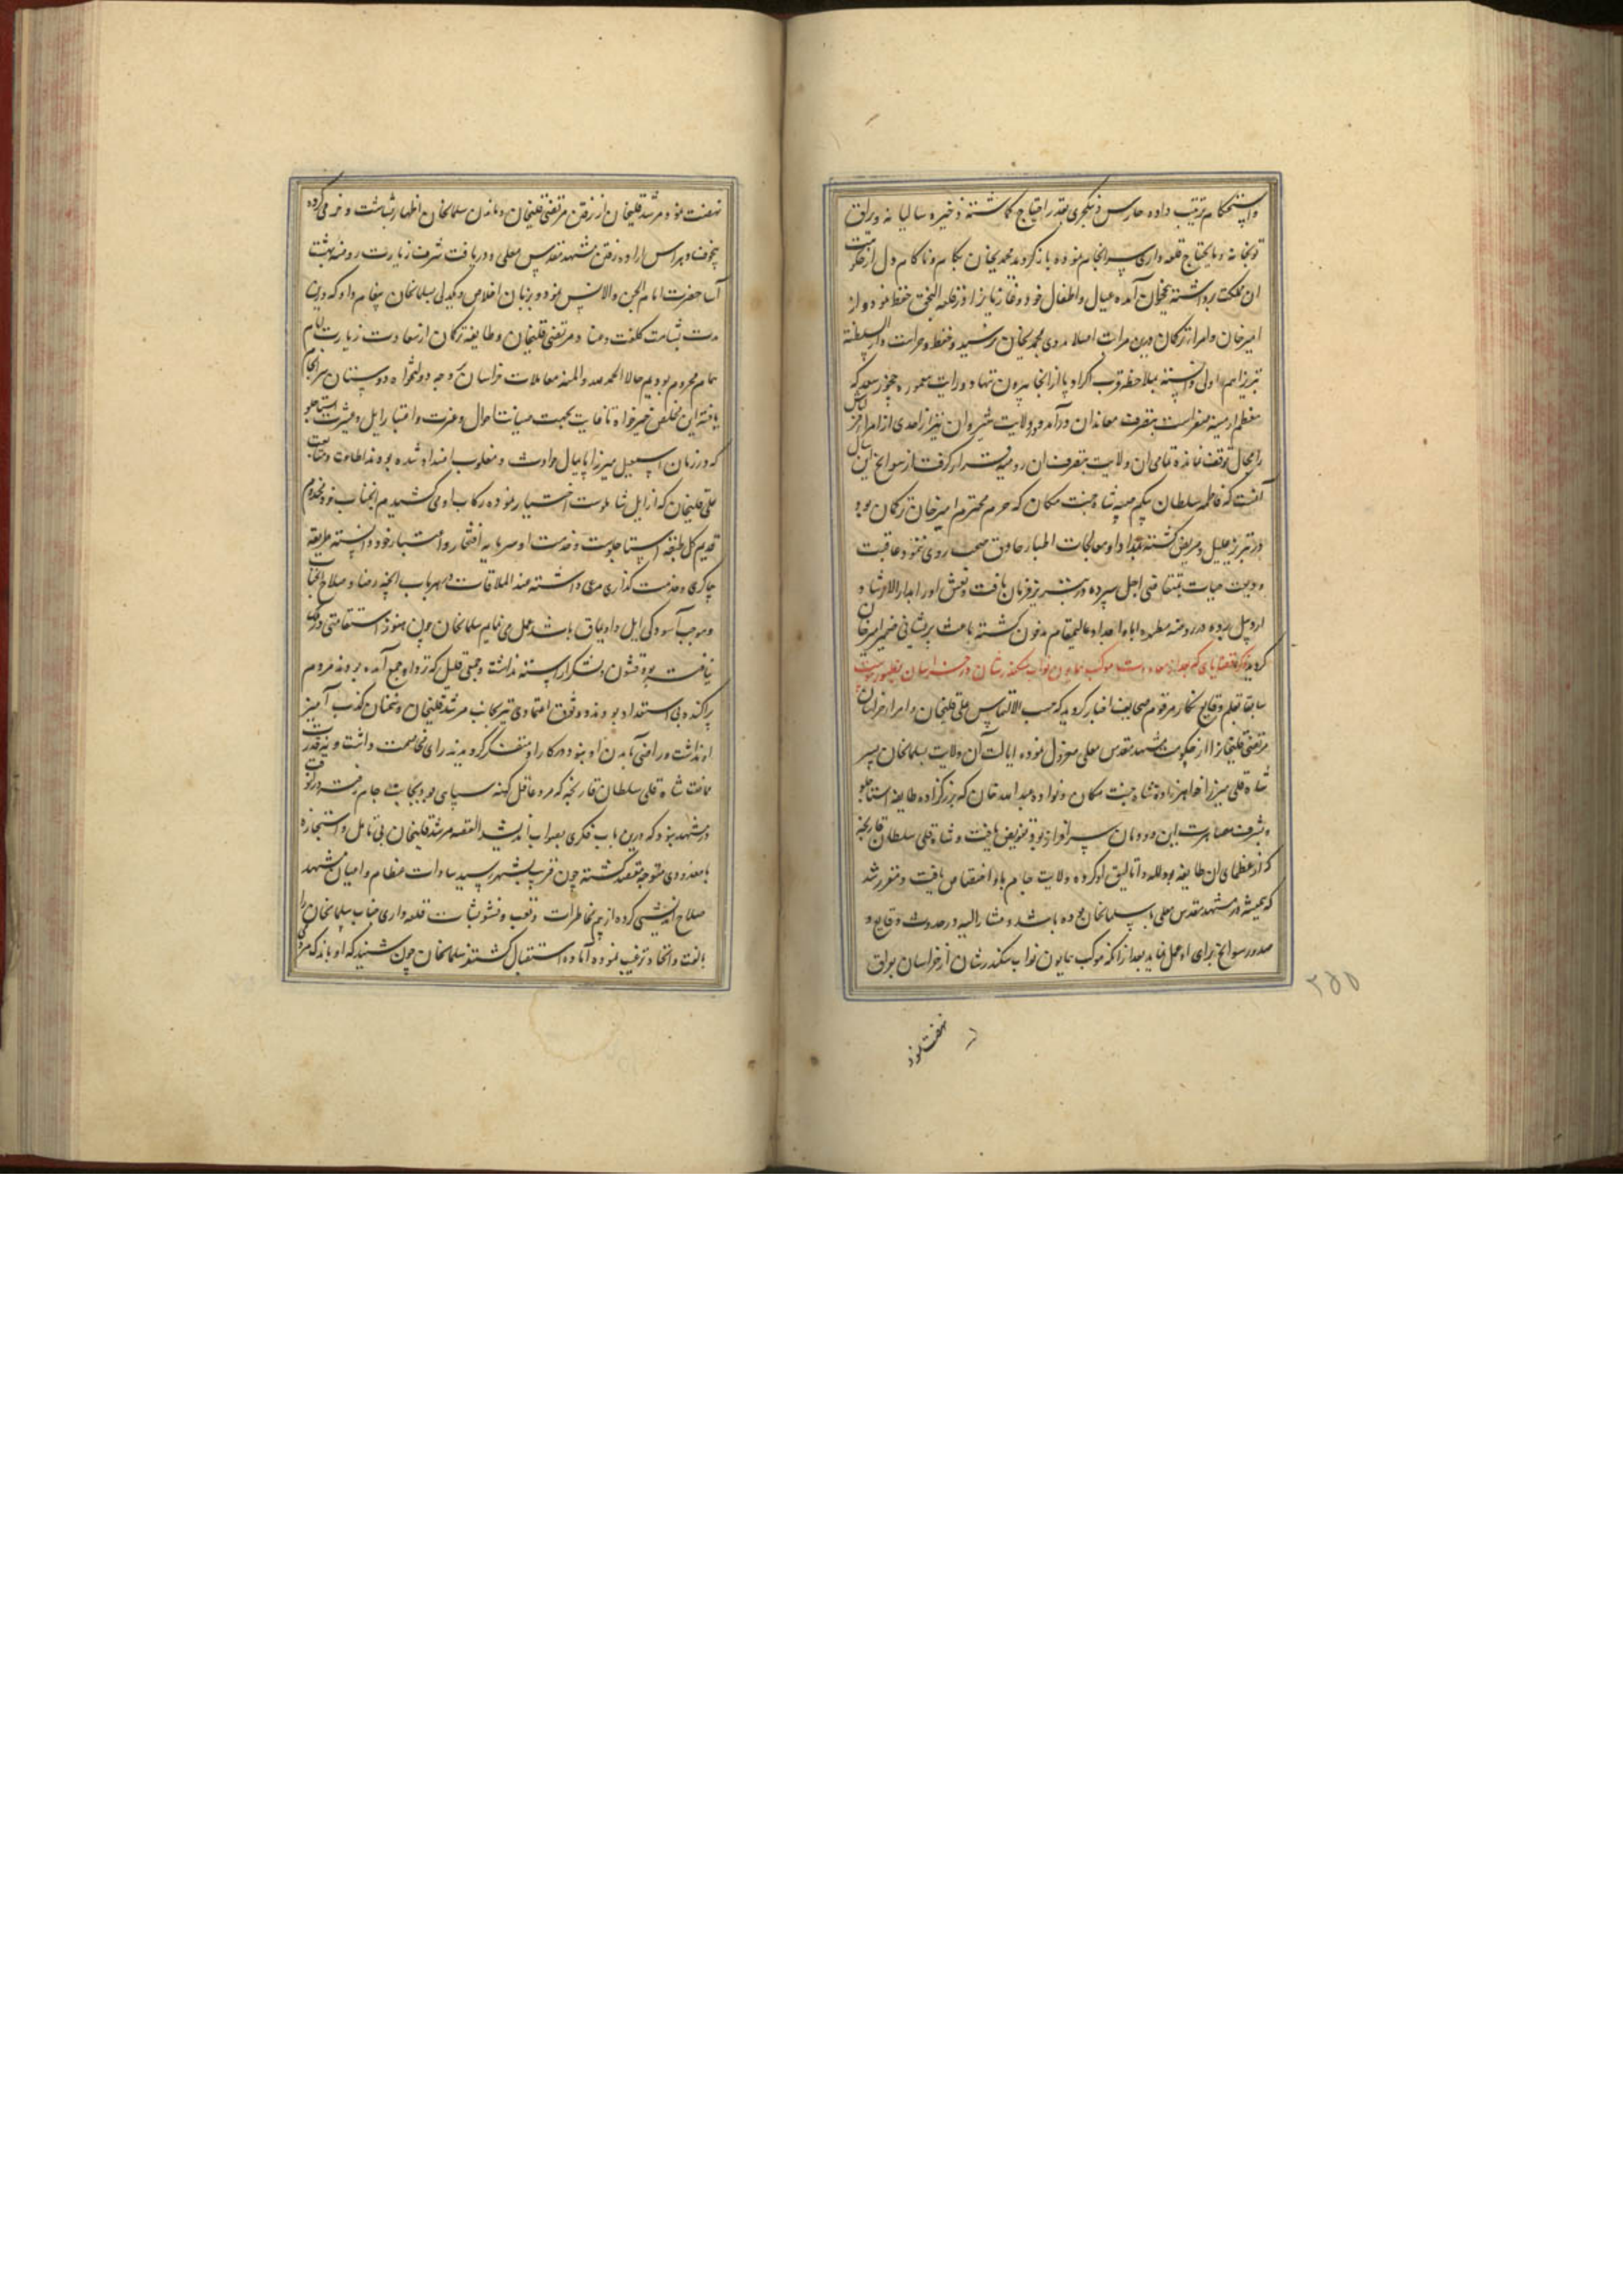 و استحکام ترتیب داده حارس و ینکچری بقدر احتیاج گماشته ذخیره سالیانه و یراق
توپخانه و مایحتاج قلعه داری سرانجام نموده بازگردید محمدیخان بکام و ناکام دل از حکومت
ان مملکت برداشته بنخجوان آمده عیال و اطفال خود و قاریان را در قلعه النجق حفظ نموده و از
امیرخان و امراء ترکمان درین مراتب اصلا مددی بمحمدیخان نرسید و حفظ و حراست دارالسلطنه
تبریز اهم و اولی دانسته بملاحظه قرب اکراد پا از انجا بیرون ننهادند و رایت معموره چخور سعد که
معظم ارمینه صغر است بتصرف معاندان درآمد و در ولایت شیروان نیز از احدی از امراء قزلباش
را مجال توقف نمانده تمامی ان ولایت بتصرف ان رومیه قرار گرفت از سوانح این سال
آنست که فاطمه سلطان بیکم صبیه شاه جنت مکان که حرم محترم امیرخان ترکمان بود
در تبریز علیل و مریض گشته مداوا و معالجات اطباء حاذق صحت روی ننمود و عاقبت
ودیعت حیات بمتقاضی اجل سپرده در تبریز فرمان یافت و نعش او را بدارالارشاد
اردبیل برده در روضه مطهره اباء و اجداد عالیمقام مدفون گشته باعث پریشانی ضمیر امیرخان
گردید ذکر قضایای که بعد از معاودت موکب همایون نواب سکندرشان در خراسان بظهور پیوست
سابقا بقلم وقایع نگار مرقوم صحایف اخبار گردید که حسب الالتماس علی قلیخان و امراء خراسان
مرتضی قلیخان را از حکومت مشهد مقدس معلی معزول نموده ایالت آن ولایت بسلمانخان پسر
شاه قلی میرزا خواهرزاده شاه جنت مکان و نواده عبدالله خان که بزرگزاده طایفه استاجلو
و بشرف مصاهرت این دودمان سرافراز بود تفویض یافت و شاه قلی سلطان قارنجه
که از عظمای ان طایفه بود لله و اتالیق او کرده ولایت جام باو اختصاص یافت و مقرر شد
که همیشه در مشهد مقدس معلی با سلمانخان بوده باشد و مشارالیه در حدوث وقایع و
صدور سوانح برای او عمل نماید بعد از انکه موکب همایون نواب سکندرشان از خراسان بعراق
نهضت نمود
۲۵۵
نهضت نمود مرشد قلیخان از رفتن مرتضی قلیخان و ماندن سلمانخان اظهار بشاشت و خرمی کرده
بیخوف و هراس اراده رفتن مشهد مقدس معلی و دریافت شرف زیارت روضه بهشت
آسا حضرت امام الجن والانس نمود و بزبان اخلاص و یکدلی بسلمانخان پیغام داد که درینمدت
بشامت کلفت و عناد مرتضی قلیخان و طایفه ترکمان از سعادت زیارت امام
همام محروم بودیم حالا الحمد لله والمنه معاملات خراسان بر وجه دولتخواه دوستان سرانجام
یافته این مخلص خیرخواه تا غایت بجهت صیانت احوال و عزت و اعتبار ایل و عشیرت استاجلو
که در زمان اسمعیل میرزا پایمال حوادث و مغلوب اضداد شده بودند اطاعت و متابعت
علی قلیخان که از ایل شاملوست اختیار نموده رکاب او می کشیدیم انجناب خود مخدوم
قدیم کل طبقه استاجلوست و خدمت او سرمایه افتخار و اعتبار خود دانسته طریقه
چاکری و خدمت گذاری مرعی داشته عند الملاقات در هر باب انچه رضا و صلاح انجناب
و موجب آسودگی ایل و اویماق باشد عمل می نمایم سلمانخان چون هنوز استقامتی در کار
نیافته بود قشون و لشکر آراسته نداشت و جمعی قلیل که نزد او جمع آمده بودند مردم
پراکنده بی استعداد بودند و وثوق اعتمادی نیز بجانب مرشد قلیخان و سخنان کذب آمیز
او نداشت و راضی بآمدن او نبود در کار او متفکر گردیدند رای مخاصمت داشت و نه قدرت
ممانعت شاه قلی سلطان قارنجه که مرد عاقل کهنه سپاهی بود بجانب جام رفته در انوقت
در مشهد نبود که درین باب فکری بصواب اندیشد القصه مرشد قلیخان بی تامل و استجازه
با معدودی متوجه مقصد گشته چون قرب بشهر رسید سادات عظام و اعیان مشهد
صلاح اندیشی کرده از بیم مخاطرات و تعب و تشویشات قلعه داری جناب سلمانخان را
بالفت و اتحاد ترغیب نموده آماده استقبال گشتند سلمانخان چون شنید که او باندک مردمی